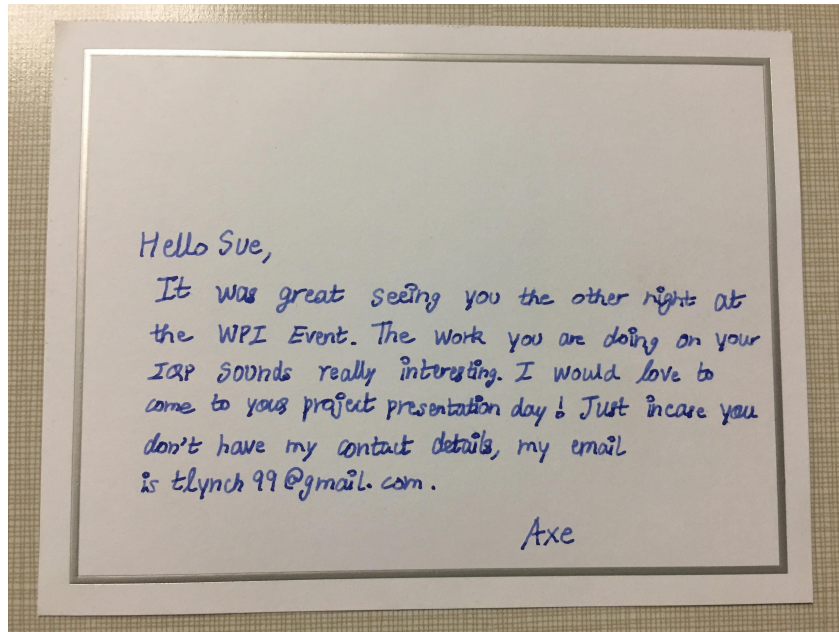 Hello Sue,
It was great seeing you the other night at
the WPI Event. The work you are doing on your
IQP sounds really interesting. I would love to
come to your project presentation day! Just incase you
don't have my contact details, my email
is tlynch99@gmail.com.
Axe